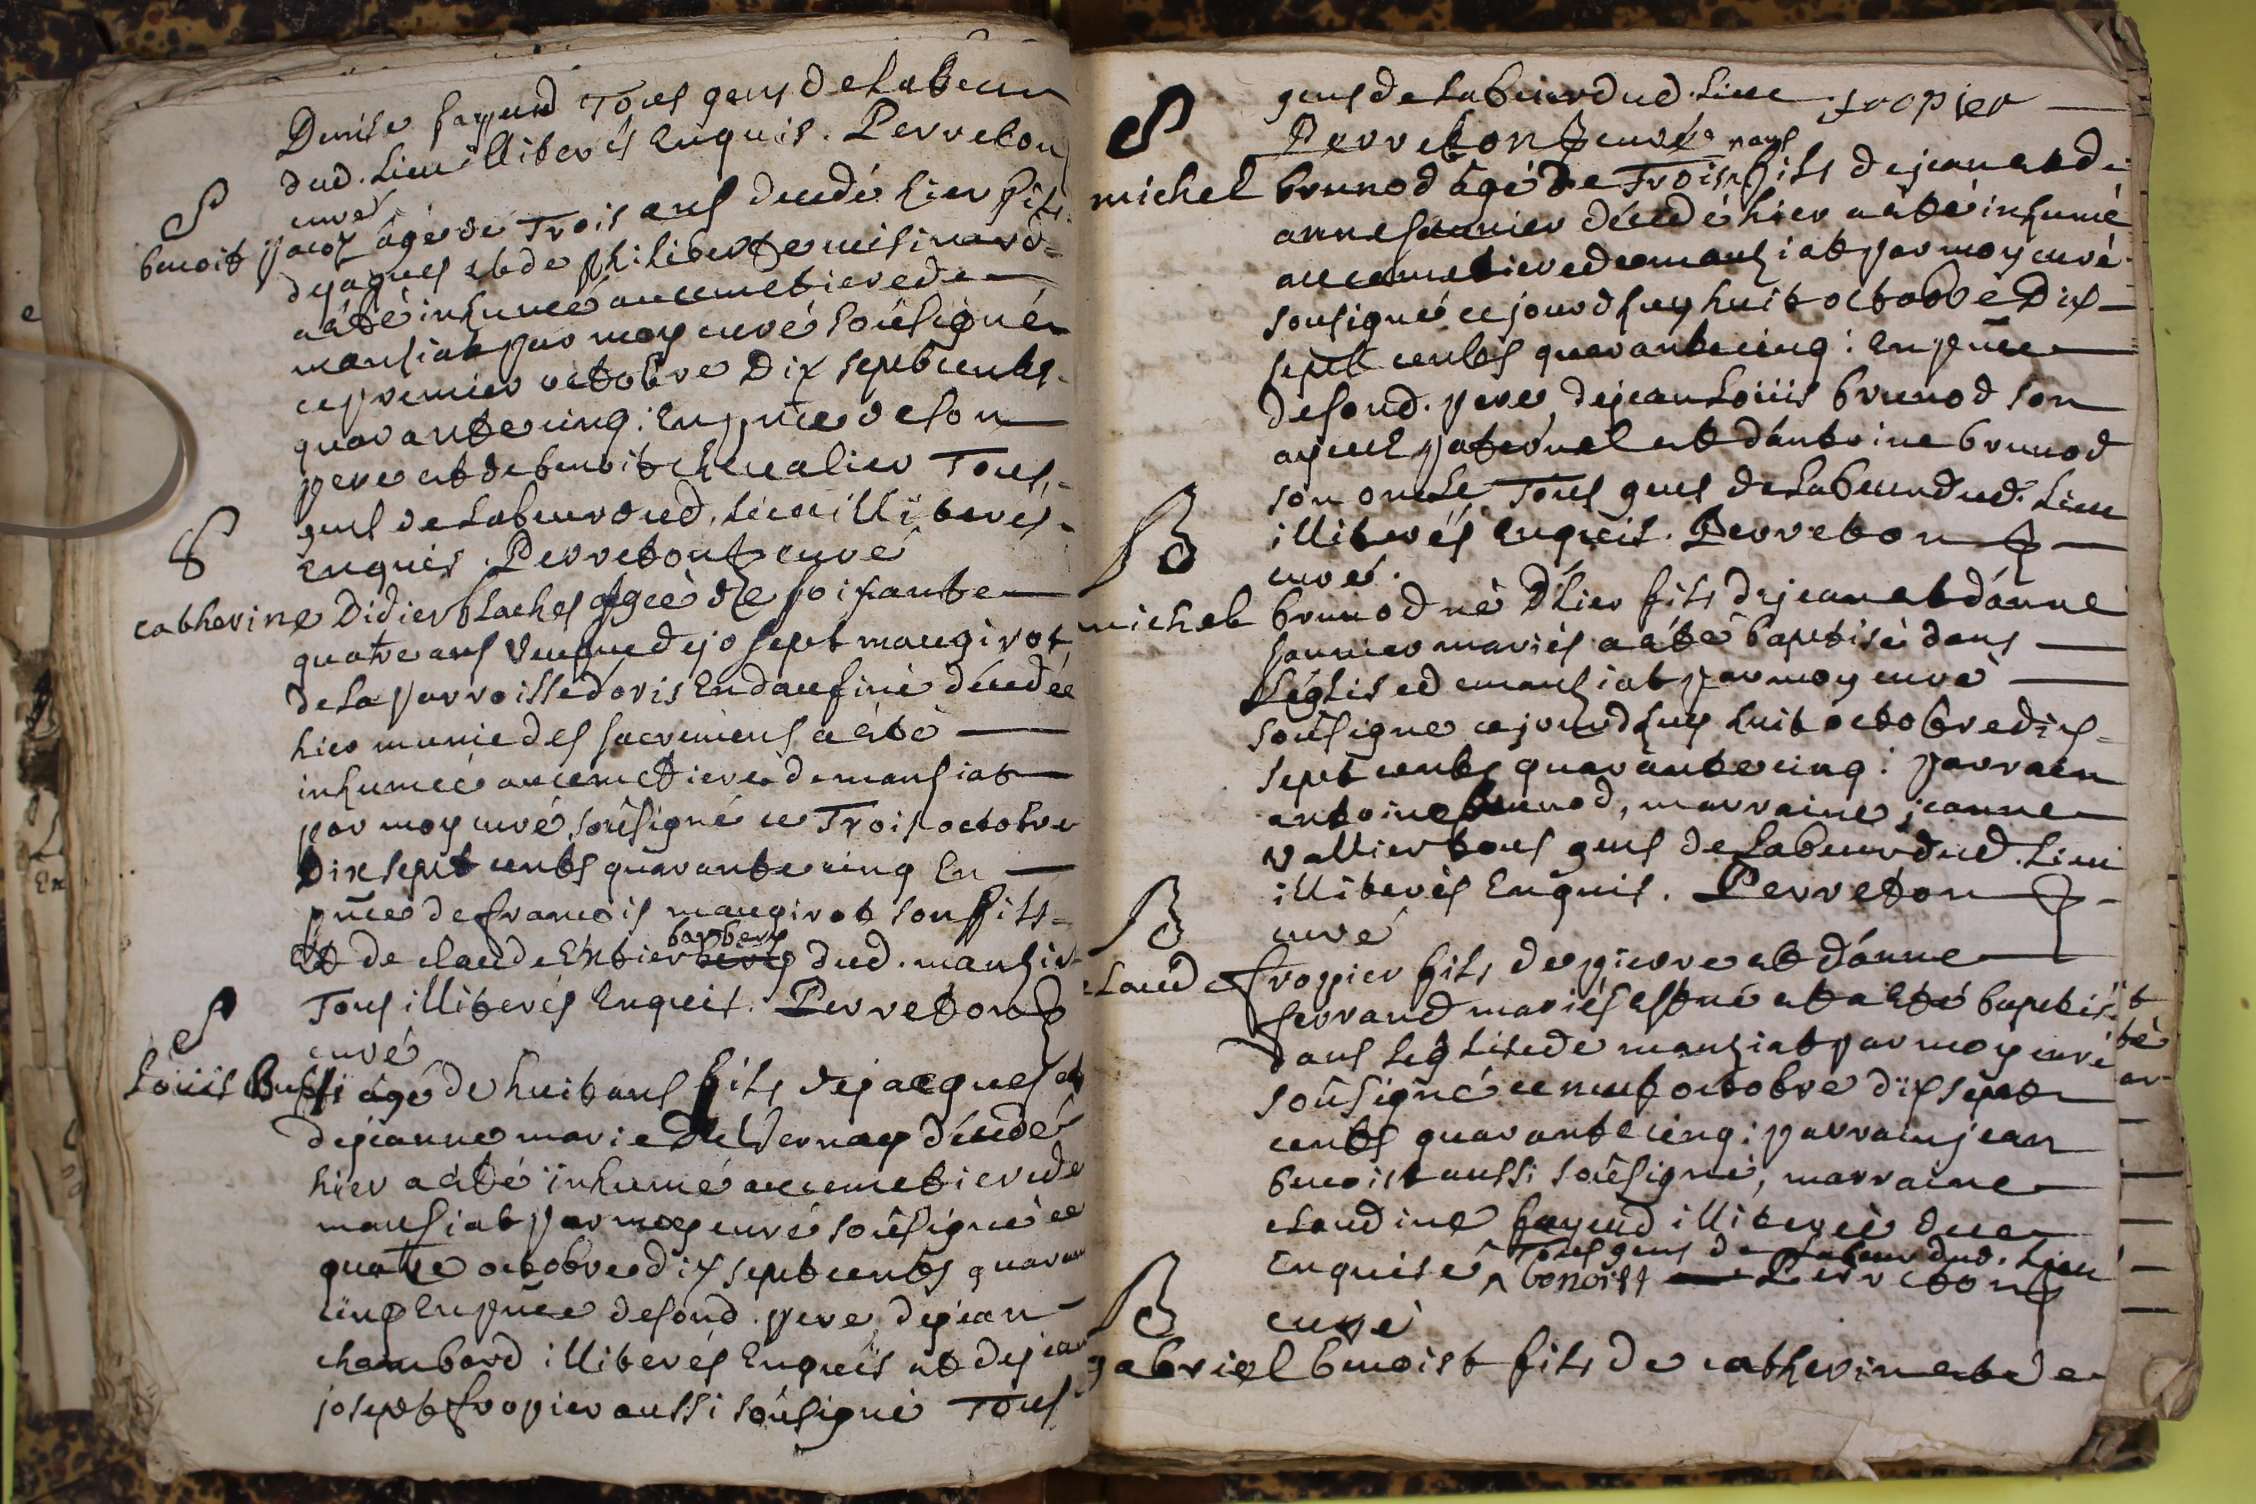 Denise fayend Tous gens de Labeur
dud. Lieu illiterés Enquis. Perreton
curé
S
benoit pacoz âgé de Trois ans décedé hier fils
de jaques et de philiberte
a eté inhumé au cemetiere de
manziat par moy curé soûsigné
ce premier octobre Dix sept cents
quarante cinq : En pnce de son
pere et de benoit chevalier Tous
gens de Labeur dud. Lieu illiterés
Enquis. Perreton curé
S
catherine Didier Laches âgée de soixante
quatre ans veuve de josept maugirot
de La parroisse d'oris En daufiné décedée
hier munie des sacremens a eté
inhumée au cemetiere de manziat
par moy curé soûsigné ce Trois octobre
Dix sept cents quarante cinq En
pnce de francois maugirot son fils
et de claude barbery dud. manziat
Tous illiterés Enquis. Perreton
curé
S
Loüis Buffi âgé de huit ans fils de jacques et
de jeanne marie Delvernay décedé
hier a eté inhumé au cemetiere de
manziat par moy curé soûsigné ce
quatre octobre dix sept cents quarante
cinq En pnce de sond. pere de jean
chambard illiterés Enquis et de jean
josept fropier aussi soûsigné Tous
gens de Labeur dud. Lieu fropier
Perreton curé
S
michel brunod âgé de Trois ans fils de jean et de
anne saunier décedé hier a eté inhumé
au cemetiere de manziat par moy curé
soûsigné ce jourdhuy huit octobre Dix
sept cents quarante cinq : En pnce
de sond. pere de jean Loüis brunod son
ayeul paternel et d'antoine brunod
son oncle Tous gens de Labeur dud. Lieu
illiterés Enquis. Perreton
curé.
B
michel brunod né D'hier fils de jean et d'anne
saunier mariés a eté baptisé dans
L'église de manziat par moy curé
soûsigné ce jourdhuy huit octobre dix
sept cents quarante cinq : parrain
antoine brunod, marraine jeanne
vallier tous gens de Labeur dud. Lieu
illiterés Enquis. Perreton
curé
B
claude fropier fils de pierre et d'anne
ferrand mariés est né et a eté baptisé
dans L'église de manziat par moy curé
soûsigné ce neuf octobre dix sept
cents quarante cinq : parrain jean
benoist aussi soûsigné, marraine
claudine fayend illiterée de ce
Enquise Tous gens de Labeur dud. Lieu
benoist Perreton
curé
B
gabriel benoist fils de catherin et de